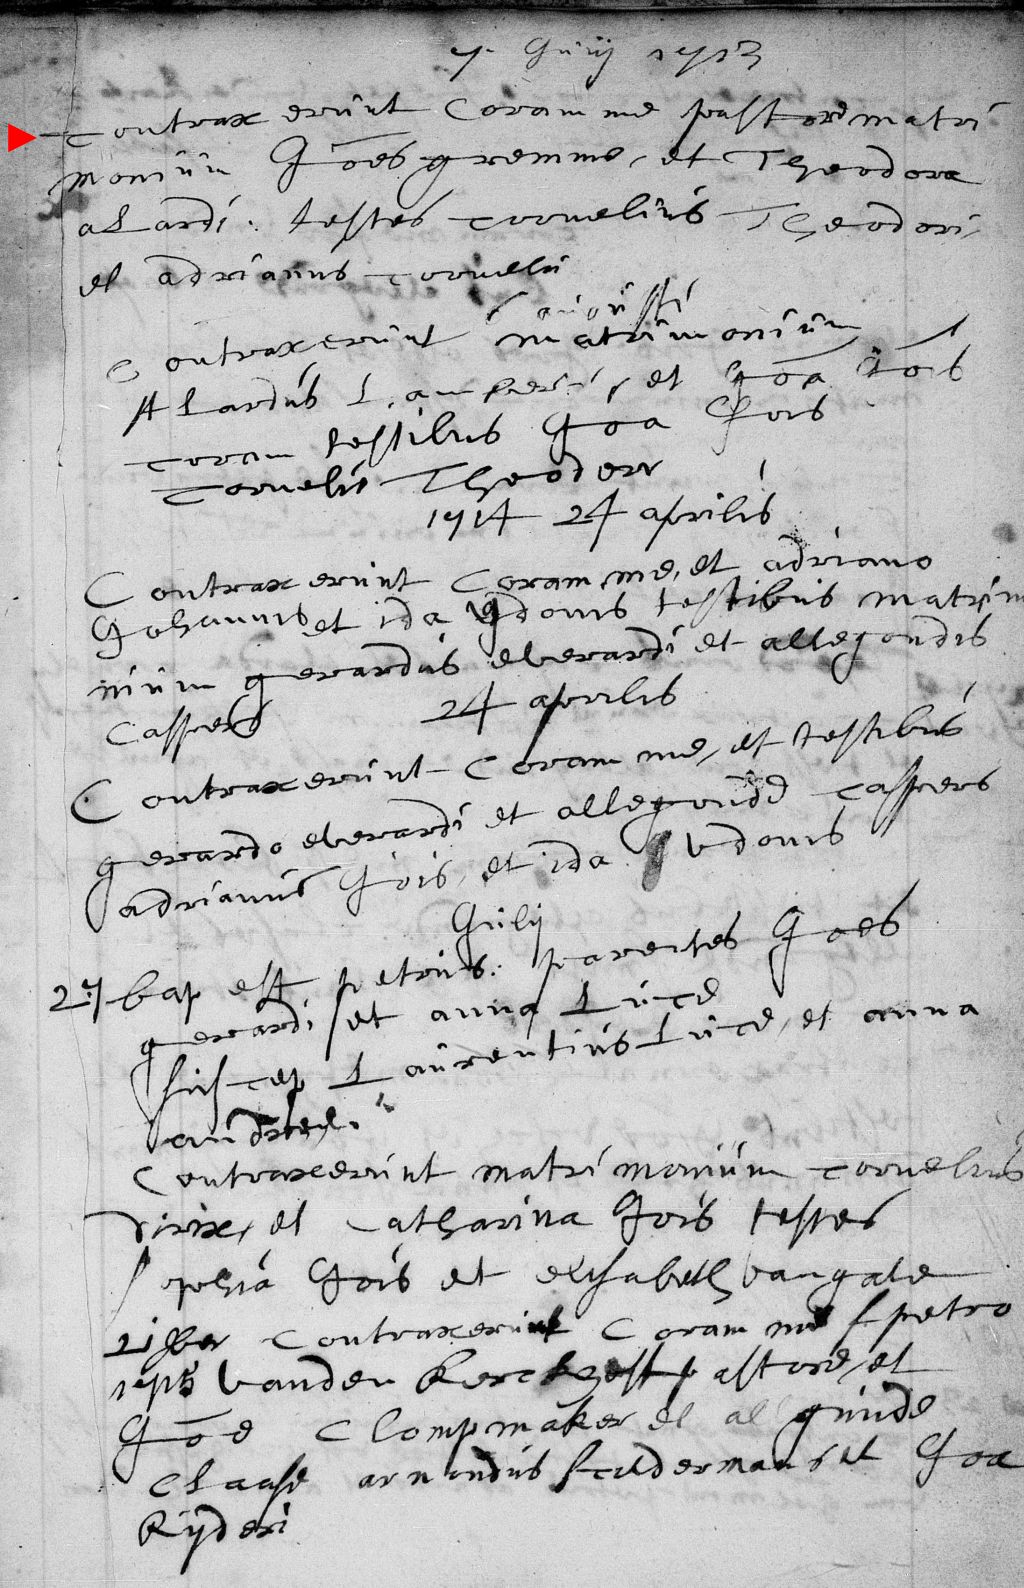 7. Juny 1713
contraxerunt Coram me pastore matri
monium Joes gremme, et Theodora
alardi. testes cornelius Theodori,
et adrianus cornelii
6 augusti
Contraxerunt matrimonium
Alardus Lamberti, et Joa Jois
coram testibus Joa Jois
cornelis Theodori
1714 24 aprilis
Contraxerunt Coram me, et adriano
Johannis et ida Udonis testibus matrim
nium gerardus everardi et allegondis
Caspers 24 aprilis
Contraxerunt Coram me, et testibus
gerardo everardi et allegonde caspers
adrianus Jois, et ida Udonis
July
27 bap est petrus. parentes Joes
gerardi et anna Luce
suscep Laurentius Luce, et anna
andree.
Contraxerunt matrimonium cornelius
dirix, et Catharina Jois testes
sophia Jois et elisabeth van gale
21 contraxerunt Coram me petro
1715 vanden Kerckhoff pastore, et
Joe Clompmaker et algunde
Claase arnondus scildermans et Joa
Ryderi